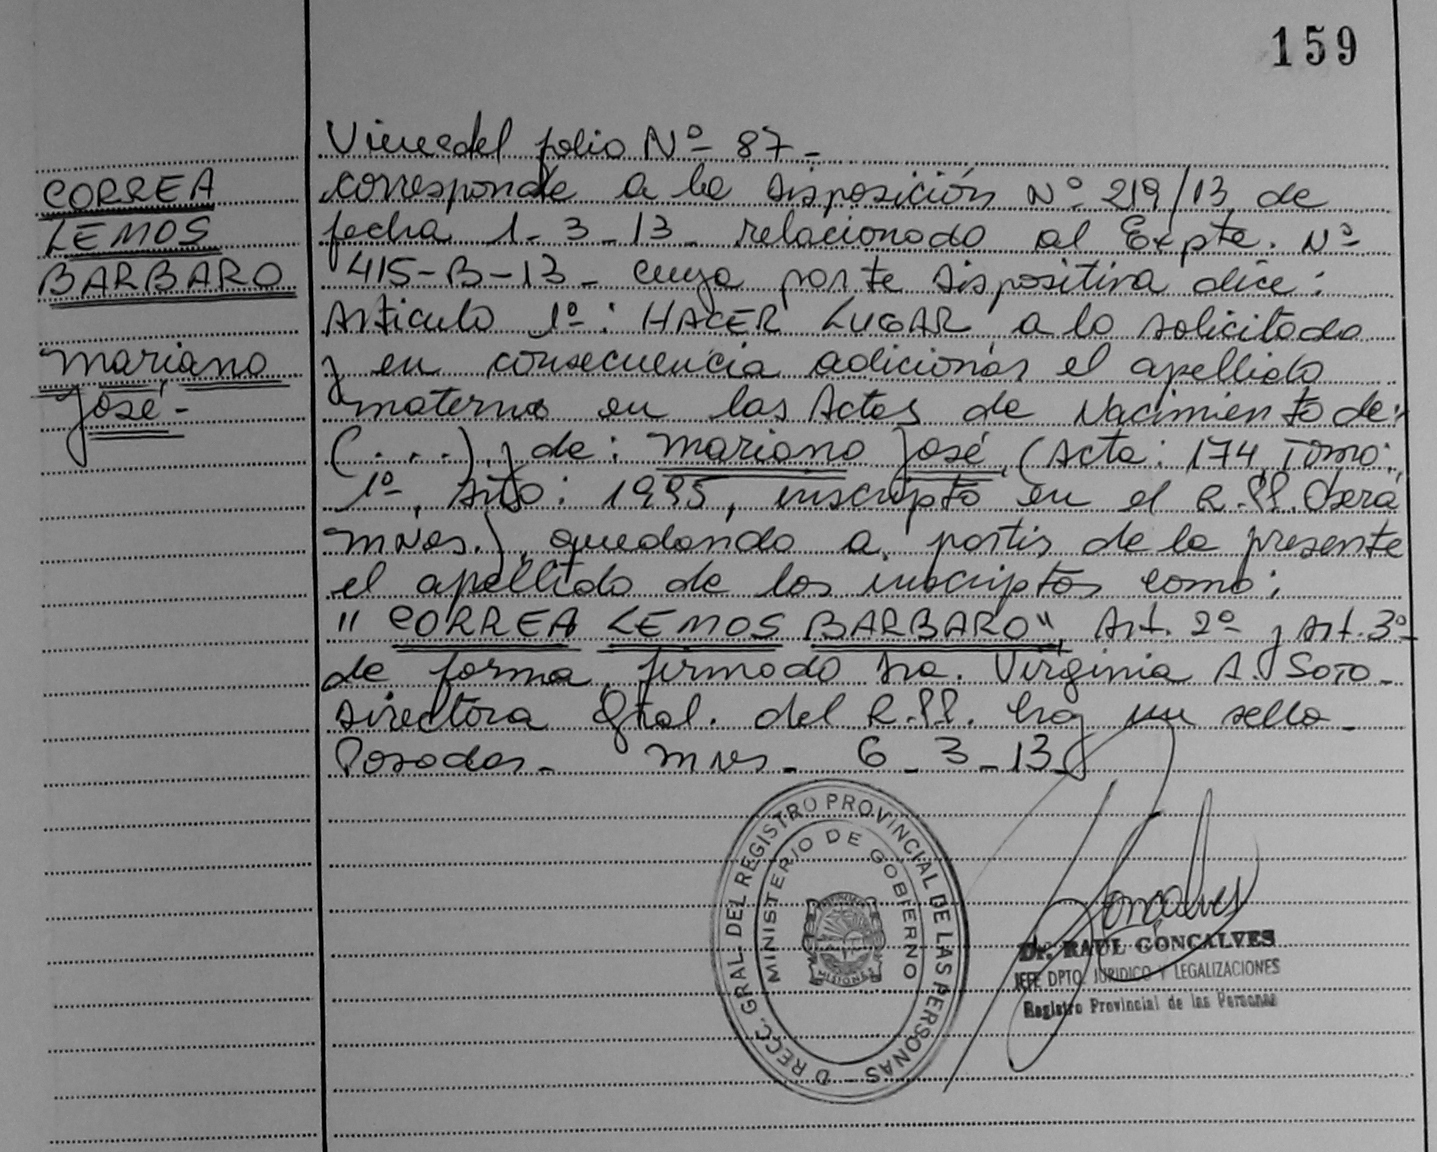 159
CORREA
LEMOS
BARBARO
Mariano
José-
Viene del folio Nº 87-
corresponde a la Disposición Nº 219/13 de
fecha 1-3-13- relacionado al Expte. Nº
415-B-13- cuya parte dispositiva dice:
Artículo 1º: HACER LUGAR a lo solicitado
y en consecuencia adicionar el apellido
materno en las Actas de Nacimiento de:
(...) y de: Mariano José (Acta: 174, Tomo:
1º, Año: 1995, inscripto en el R.PP. Oberá
Mnes.), quedando a partir de la presente
el apellido de los inscriptos como:
"CORREA LEMOS BARBARO", Art. 2º y Art. 3º
de forma, firmado Sra. Virginia A. Soto-
Directora Gral. del R.PP. hay un sello-
Posadas- Mnes- 6-3-13-
DIRECC. GRAL. DEL REGISTRO PROVINCIAL DE LAS PERSONAS
MINISTERIO DE GOBIERNO
MISIONES
Goncalves
Dr. RAUL GONCALVES
JEFE DPTO. JURIDICO Y LEGALIZACIONES
Registro Provincial de las Personas